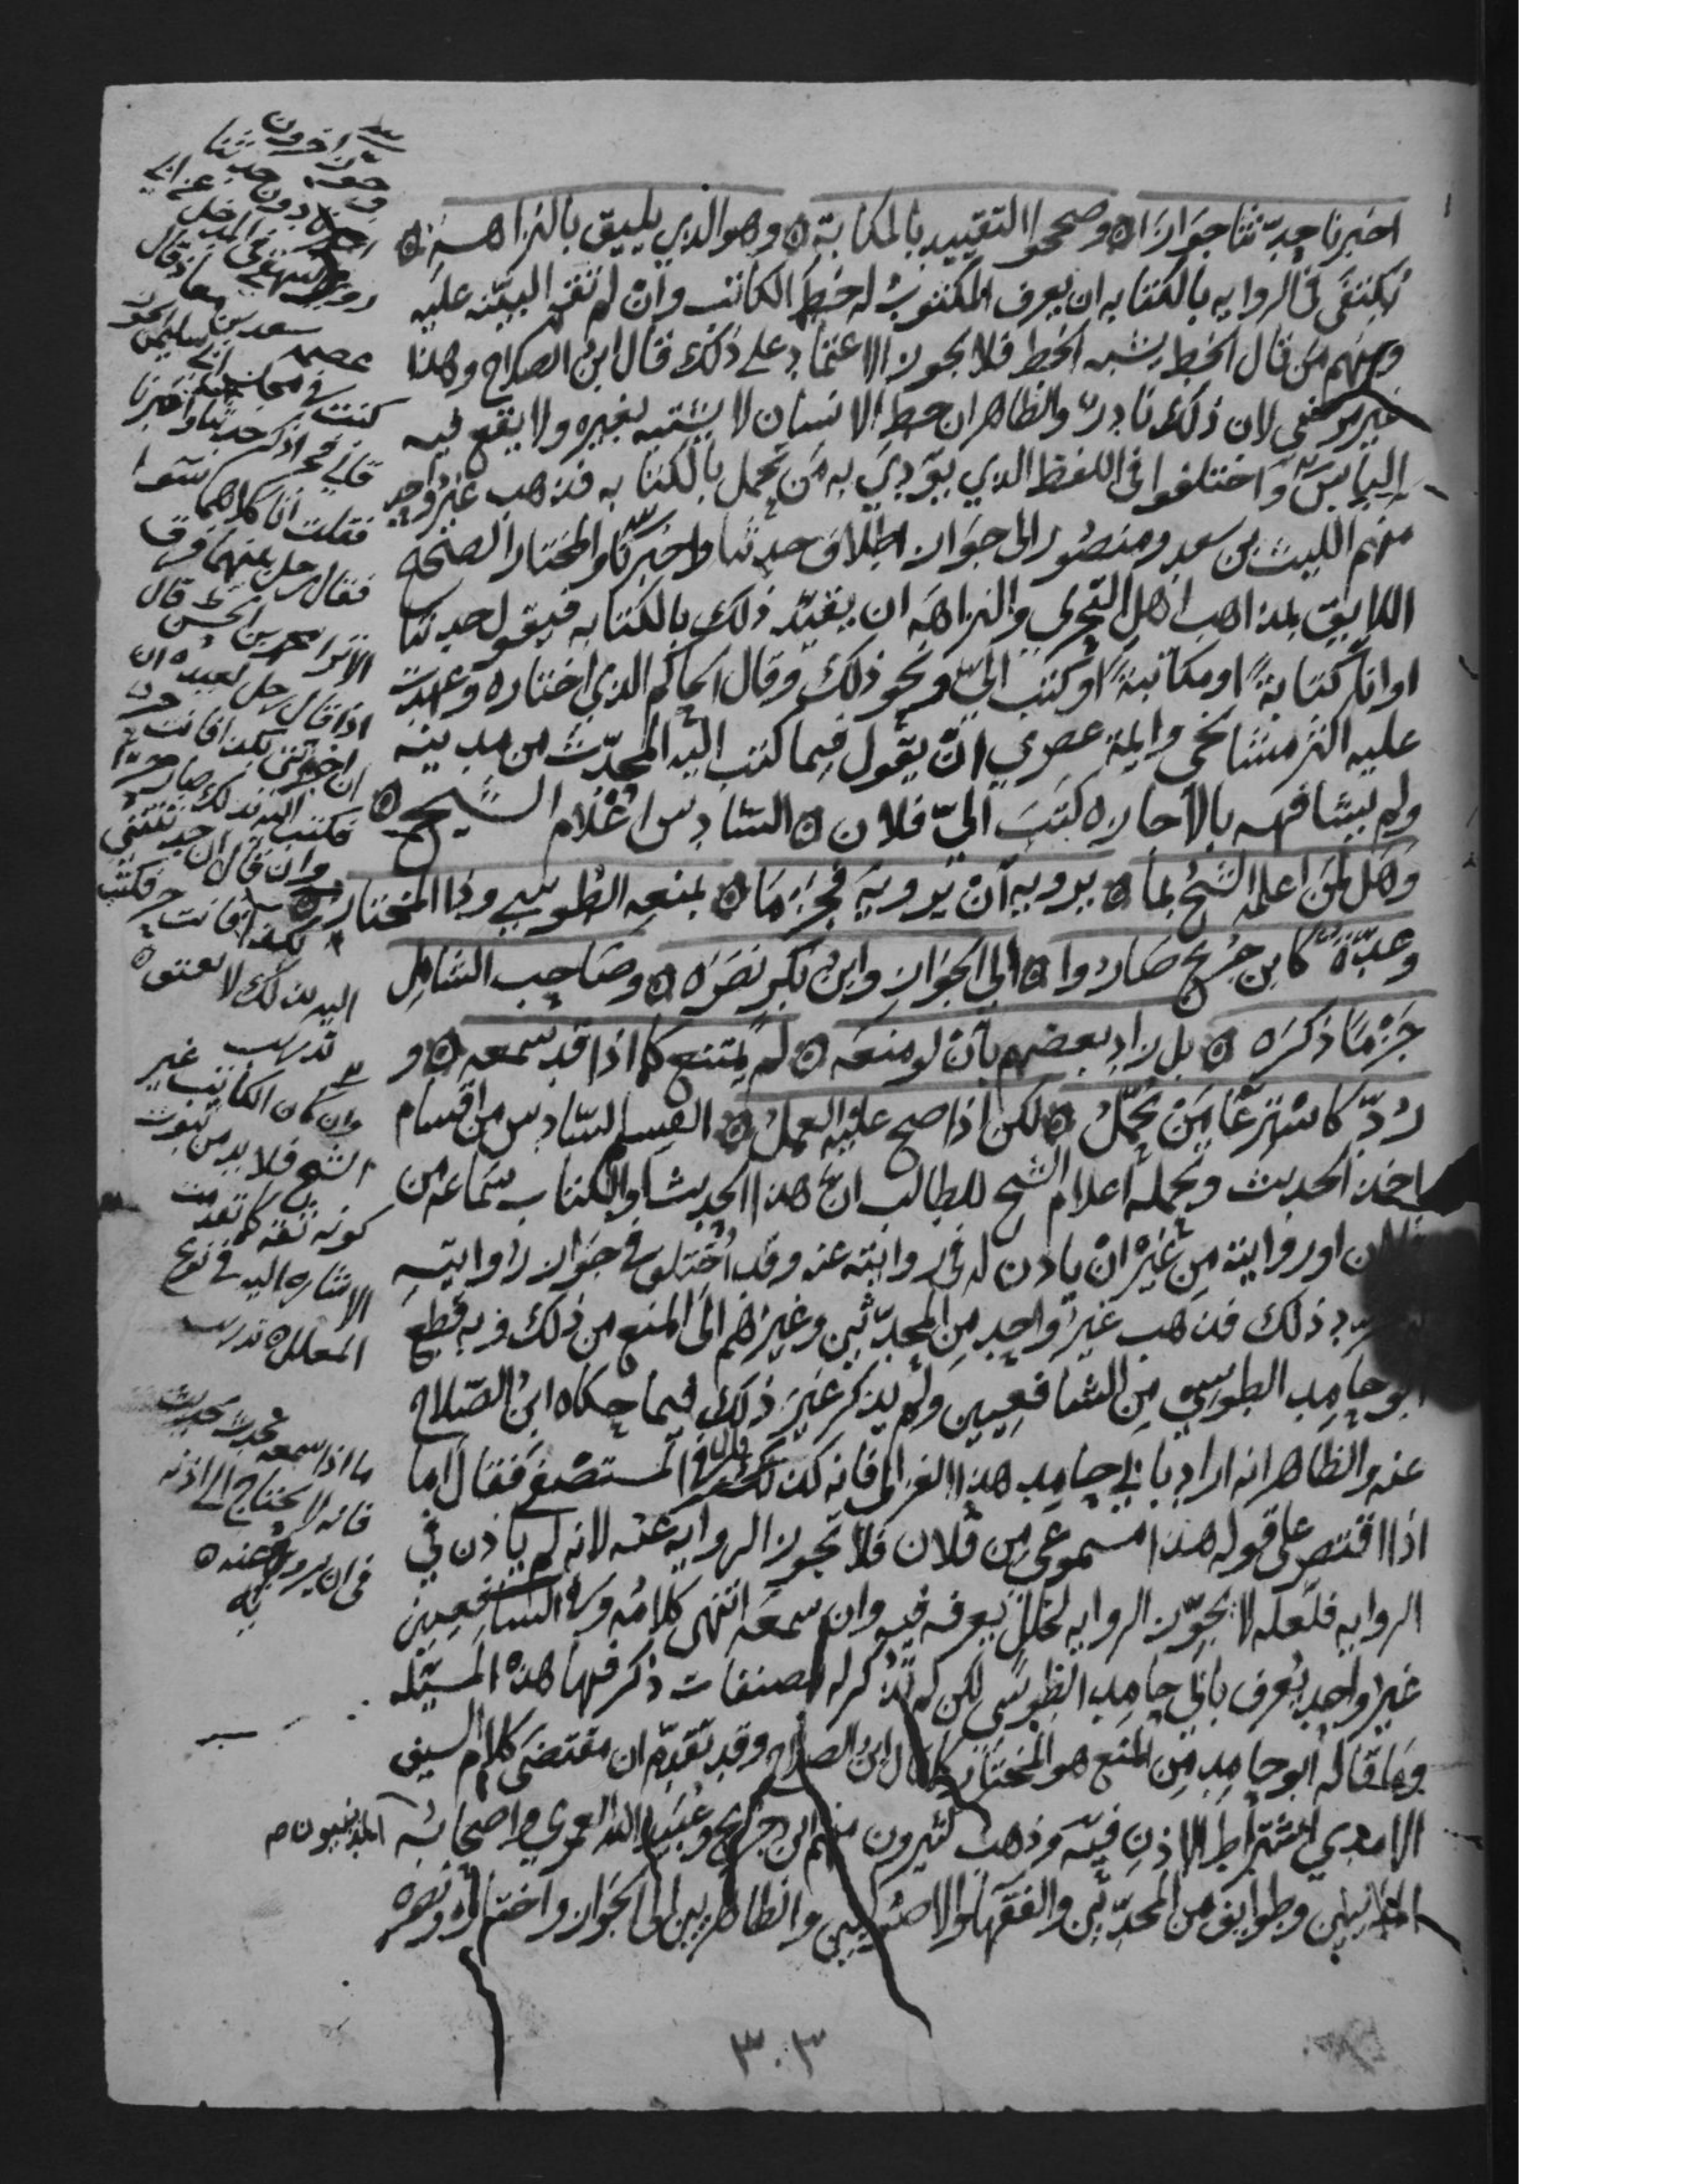 اخبرنا حدثنا جوازا ۞ وصححوا التقييد بالمكاتبة ۞ وهو الذي يليق بالنزاهه ۞
يكتفى فى الروايه بالكتابه ان يعرف المكتوب له خط الكاتب وان لم تقم البينه عليه
ومنهم من قال الخط يشبه الخط فلا يجوز الاعتماد على ذلك قال ابن الصلاح وهذا
غير مرضي لان ذلك نادر والظاهر ان خط الانسان لا يشتبه بغيره ولا يقع فيه
الباس واختلفوا فى اللفظ الذي يودي به من تحمل بالكتابه فذهب غير واحد
منهم الليث بن سعد ومنصور الى جواز اطلاق حدثنا واخبرنا والمختار الصحيح
اللايق بمذاهب اهل التحري والنزاهه ان يقيد ذلك بالكتابه فيقول حدثنا
او انا كتابة او مكاتبة او كتب الى ونحو ذلك وقال الحاكم الذي اختاره وعهدت
عليه اكثر مشائخي وايمة عصري ان يقول فيما كتب اليه المحدث من مدينه
ولم يشافهه بالاجازه كتب الي فلان ۞ السادس اعلام الشيخ ۞
وهل لمن اعلمه الشيخ بما ۞ يرويه ان يرويه فجزما ۞ بمنعه الطوسي وذا المختار ۞
وعدة كابن جريج صاروا ۞ الى الجواز وابن بكر نصره ۞ وصاحب الشامل
جزما ذكره ۞ بل زاد بعضهم بان لو منعه ۞ لم يمتنع كما اذا قد سمعه ۞ و
رد كاسترعا من تحمل ۞ لكن اذا صح عليه العمل ۞ القسم السادس من اقسام
اخذ الحديث وتحمله اعلام الشيخ للطالب ان هذا الحديث او الكتاب سماعه من
فلان او روايته من غير ان ياذن له فى روايته عنه وقد اختلف فى جواز روايته
بمجرد ذلك فذهب غير واحد من المحدثين وغيرهم الى المنع من ذلك وبه قطع
ابو حامد الطوسي من الشافعيين ولم يذكر غير ذلك فيما حكاه ابن الصلاح
عنه والظاهر انه اراد بابي حامد هذا الغزالي فانه كذلك قال فى المستصفى فقال اما
اذا اقتصر على قوله هذا مسموعي من فلان فلا تجوز الروايه عنه لانه لم ياذن في
الروايه فلعله لا يجوز الروايه لخلل يعرفه فيه وان سمعه انتهى كلامه وفى الشافعيين
غير واحد يعرف بابي حامد الطوسي لكن لم تذكر له مصنفات ذكر فيها هذه المسئله
وما قاله ابو حامد من المنع هو المختار كما قال ابن الصلاح وقد تقدم ان مقتضى كلام السيف
الامدي اشتراط الاذن فيه وذهب كثيرون منهم ابن جريج وعبيد الله العمري واصحابه المدنيون
وطوايف من المحدثين والفقها والاصوليين والظاهريين الى الجواز واختاره ونصره
سعد بن معاذ قال
كنت في مجلس
اذكر حدثنا واخبرنا
فقلت انا كلاهما سوا
فقال رجل بينهما فرق
محمد بن الحسن قال
اذا قال رجل لعبده ان
اخبرتني بكذا فانت حر
فكتب اليه بذلك صار حرا
وان قال ان حدثتني
بكذا فانت حر فكتب
اليه بذلك لا يعتق ۞
وان كان الكاتب غير
الشيخ فلا بد من ثبوت
كونه ثقه كما تقدمت
الاشاره اليه فى نوع
المعلل ۞ تدريب
ما اذا سمعه يحدث بحديث
فانه لا يحتاج الى اذنه
فى ان يرويه عنه ۞
٣٠٣